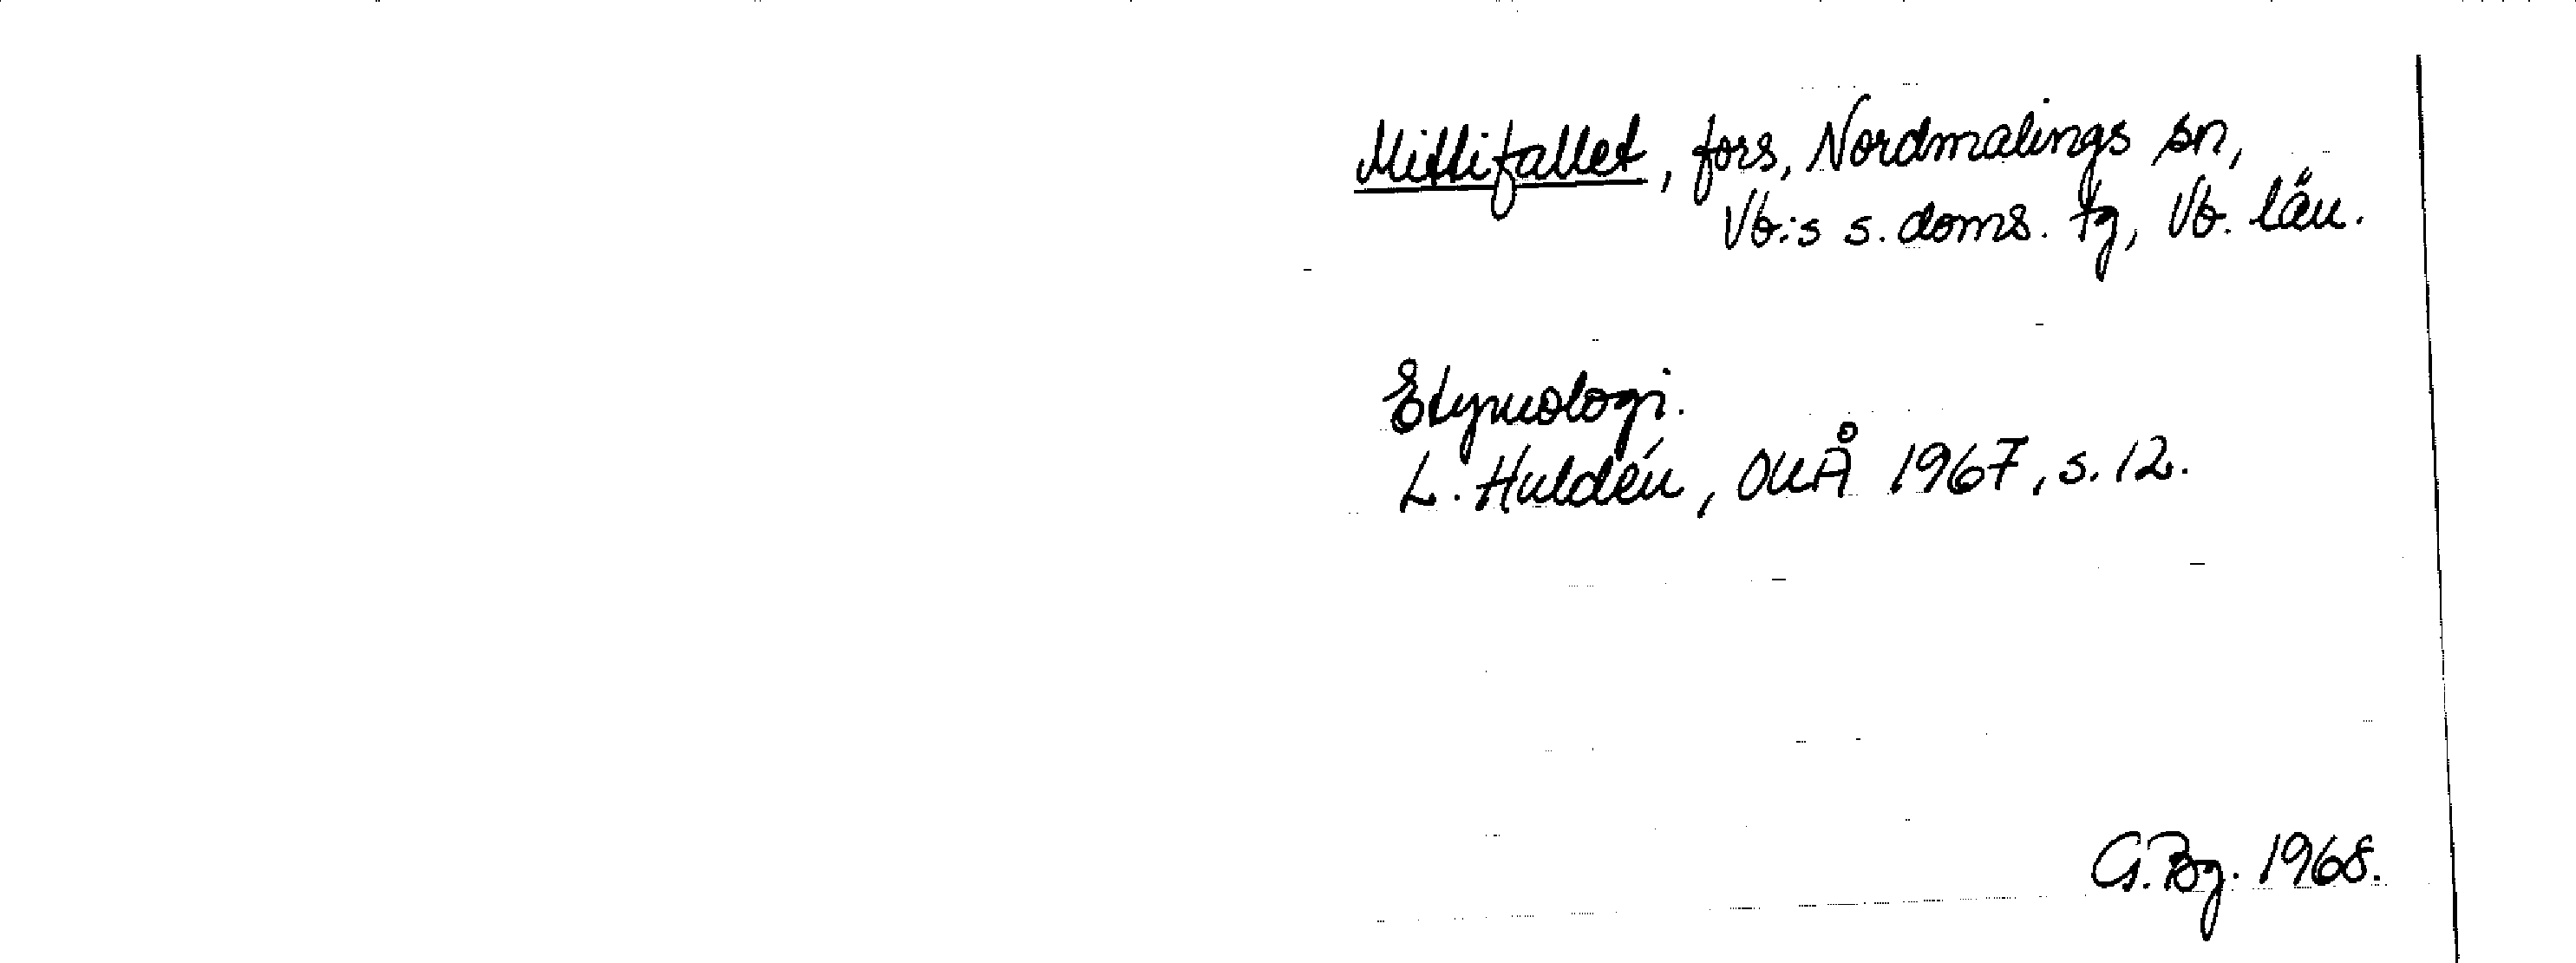 Mittifallet, fors, Nordmalings sn,
Vb:s s. doms. tg, Vb. län.
Etymologi.
L. Huldén, OUÅ 1967, s. 12.
G. Bg. 1968.